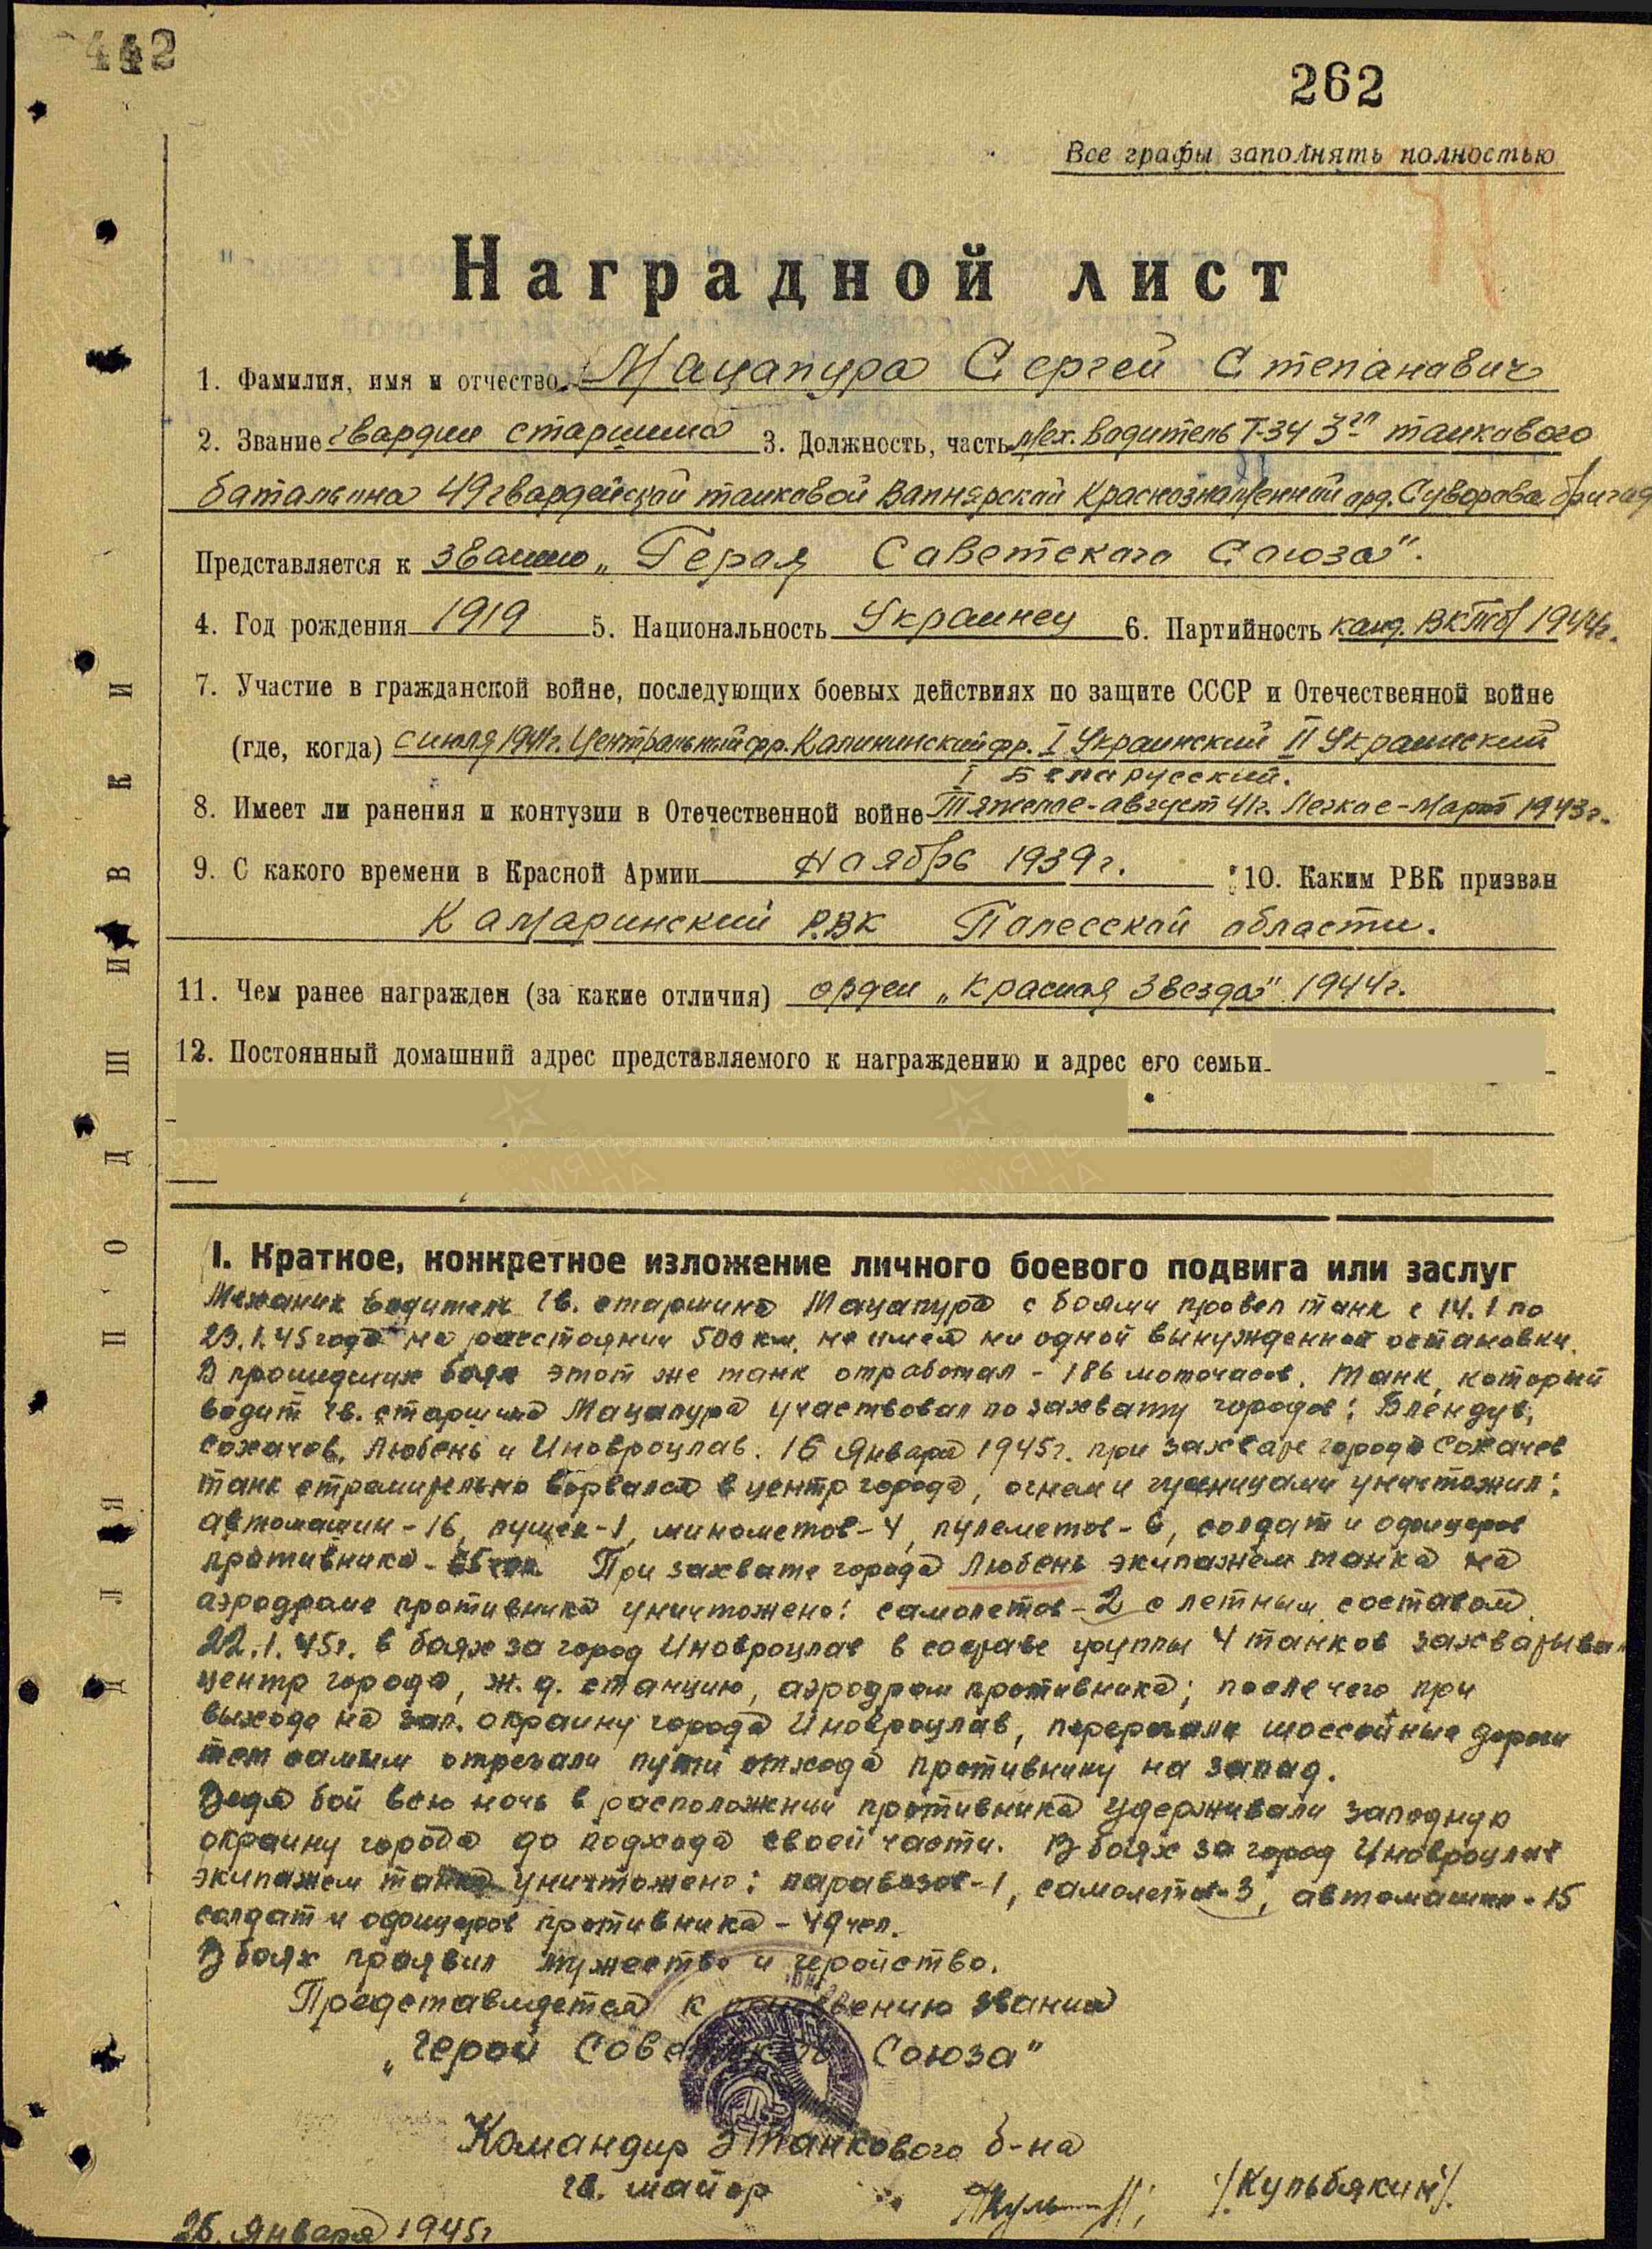 442
262
Все графы заполнять полностью
Наградной лист
1. Фамилия, имя и отчество Мацапура Сергей Степанович
2. Звание гвардии старшина 3. Должность, часть мех. водитель Т-34 3го танкового
батальона 49 гвардейской танковой Вапнярской Краснознаменной орд. Суворова бригад
Представляется к званию „Героя Советского Союза".
4. Год рождения 1919 5. Национальность Украинец 6. Партийность канд. ВКП(б) 1944г.
7. Участие в гражданской войне, последующих боевых действиях по защите СССР и Отечественной войне
(где, когда) с июля 1941г. Центральный фр. Калининский фр. I Украинский II Украинский
I Беларусский.
8. Имеет ли ранения и контузии в Отечественной войне Тяжелое-август 41г. Легкое-март 1943г.
9. С какого времени в Красной Армии Ноябрь 1939г. 10. Каким РВК призван
Камаринский РВК Полесской области.
11. Чем ранее награжден (за какие отличия) орден „Красная Звезда" 1944г.
12. Постоянный домашний адрес представляемого к награждению и адрес его семьи
I. Краткое, конкретное изложение личного боевого подвига или заслуг
Механик водитель гв. старшина Мацапура с боями провел танк с 14.1 по
23.1.45 года на расстоянии 500 км. не имея ни одной вынужденной остановки.
В прошедших боях этот же танк отработал - 186 моточасов. Танк, который
водит гв. старшина Мацапура участвовал по захвату городов: Блендув,
Сохачев, Любень и Иновроцлав. 16 Января 1945г. при захвате города Сохачев
танк стремительно ворвался в центр города, огнем и гусеницами уничтожил:
автомашин-16, пушек-1, минометов-4, пулеметов-6, солдат и офицеров
противника - При захвате города Любень экипажем танка на
аэродроме противника уничтожено: самолетов-2 с летным составом.
22.1.45г. в боях за город Иновроцлав в составе группы 4 танков захватывал
центр города, ж.д. станцию, аэродром противника; после чего при
выходе на зап. окраину города Иновроцлав, перерезали шоссейные дороги
тем самым отрезали пути отхода противнику на запад.
Ведя бой всю ночь в расположении противника удерживали западную
окраину города до подхода своей части. В боях за город Иновроцлав
экипажем танка уничтожено: паровозов-1, самолетов-3, автомашин-15
солдат и офицеров противника - 49 чел.
В боях проявил мужество и геройство.
Представляется к присвоению звания
„Герой Советского Союза"
Командир 3 танкового б-на
гв. майор /Кульбякин/.
25. Января 1945г
ПОДШИВКИ
ДЛЯ